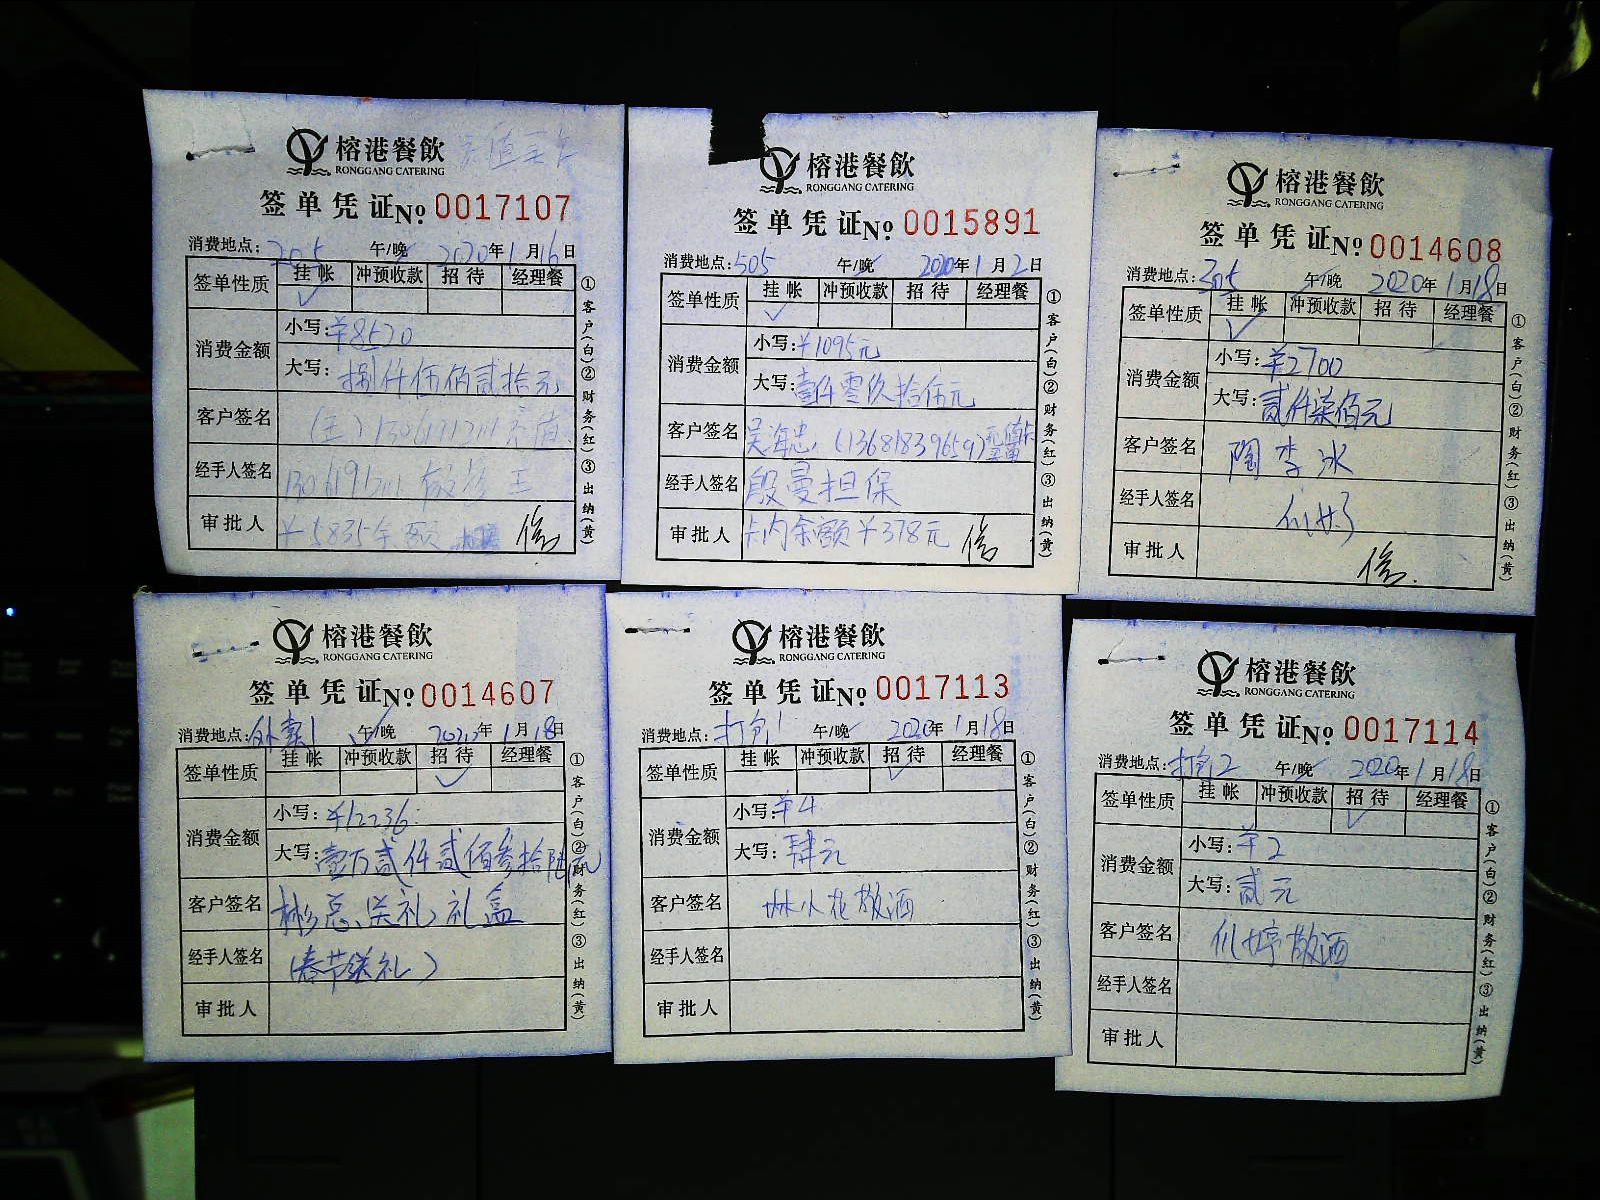 榕港餐飲
RONGGANG CATERING
签单凭证 No 0017107
消费地点: 205 午/晚 2020年1月16日
签单性质 挂帐 冲预收款 招待 经理餐
消费金额
小写: ¥8520
大写: 捌仟伍佰贰拾元
客户签名
经手人签名
审批人 ¥5835余额
①客户(白)②财务(红)③出纳(黄)
榕港餐飲
RONGGANG CATERING
签单凭证 No 0015891
消费地点: 505 午/晚 2020年1月2日
签单性质 挂帐 冲预收款 招待 经理餐
消费金额
小写: ¥1095元
大写: 壹仟零玖拾伍元
客户签名 吴海忠 (13681839659)
经手人签名 殷曼担保
审批人 卡内余额¥378元
①客户(白)②财务(红)③出纳(黄)
榕港餐飲
RONGGANG CATERING
签单凭证 No 0014608
消费地点: 305 午/晚 2020年1月18日
签单性质 挂帐 冲预收款 招待 经理餐
消费金额
小写: ¥2700
大写: 贰仟柒佰元
客户签名 陶李冰
经手人签名
审批人
①客户(白)②财务(红)③出纳(黄)
榕港餐飲
RONGGANG CATERING
签单凭证 No 0014607
消费地点: 外卖1 午/晚 2020年1月18日
签单性质 挂帐 冲预收款 招待 经理餐
消费金额
小写: ¥12236
大写: 壹万贰仟贰佰叁拾陆元
客户签名 彬总、送礼、礼盒
经手人签名 (春节送礼)
审批人
①客户(白)②财务(红)③出纳(黄)
榕港餐飲
RONGGANG CATERING
签单凭证 No 0017113
消费地点: 打包1 午/晚 2020年1月18日
签单性质 挂帐 冲预收款 招待 经理餐
消费金额
小写: ¥4
大写: 肆元
客户签名 林小花敬酒
经手人签名
审批人
①客户(白)②财务(红)③出纳(黄)
榕港餐飲
RONGGANG CATERING
签单凭证 No 0017114
消费地点: 打包2 午/晚 2020年1月18日
签单性质 挂帐 冲预收款 招待 经理餐
消费金额
小写: ¥2
大写: 贰元
客户签名 仉婷敬酒
经手人签名
审批人
①客户(白)②财务(红)③出纳(黄)